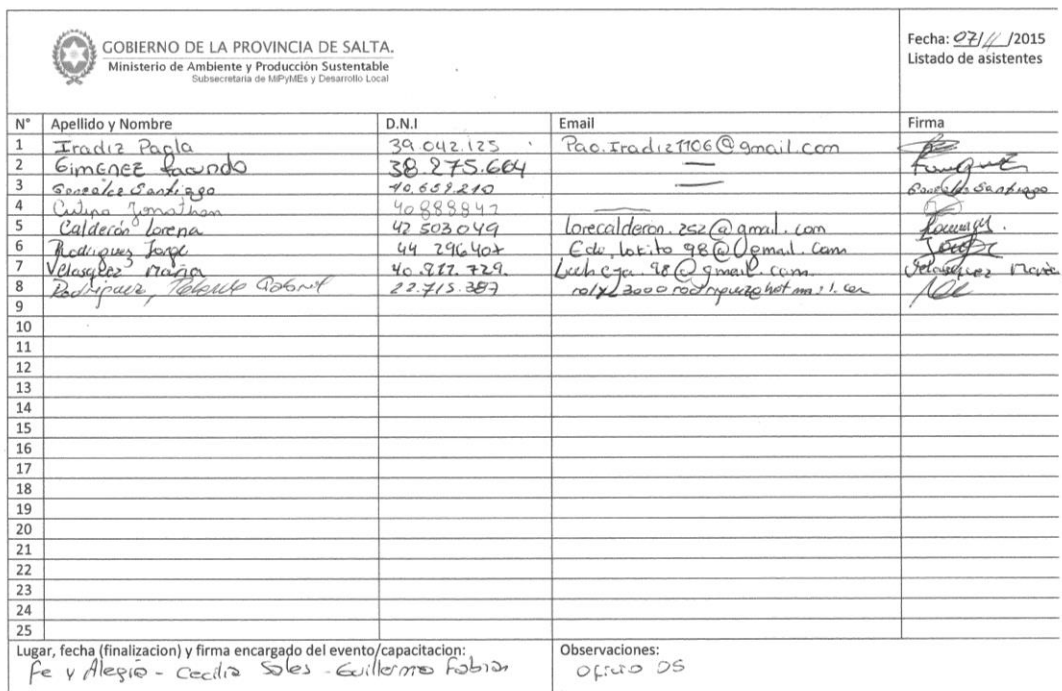 GOBIERNO DE LA PROVINCIA DE SALTA.
Ministerio de Ambiente y Producción Sustentable
Subsecretaria de MiPyMEs y Desarrollo Local
Fecha: 07/11/2015
Listado de asistentes
N° Apellido y Nombre D.N.I Email Firma
1 Iradiz Paola 39.042.125 Pao.Iradiz1106@gmail.com
2 Gimenez Facundo 38.275.664 —
3 Gonzalez Santiago 40.659.210 — Gonzalez Santiago
4 Jonathan —
5 Calderón Lorena 42 503 049 lorecalderon.252@gmail.com
6 Rodriguez Jorge 44 296407 Edu.lokito98@gmail.com
7 Velasquez Maria 40.917.729. @gmail.com. Velasquez Maria
8 Rodriguez, Gabriel 22.715.387
9
10
11
12
13
14
15
16
17
18
19
20
21
22
23
24
25
Lugar, fecha (finalizacion) y firma encargado del evento/capacitacion:
Fe y Alegria - Cecilia Soles - Guillermo Fabian
Observaciones:
Oficio DS